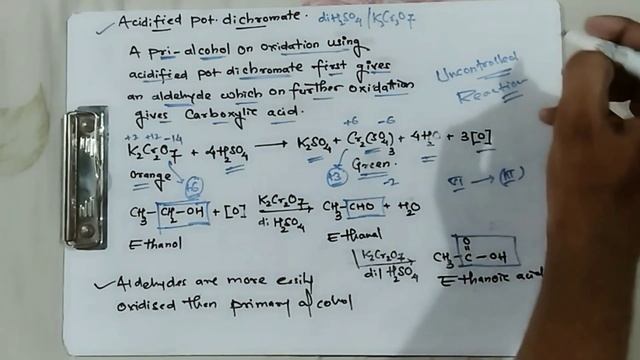 ✓ Acidified pot. dichromate. dil H₂SO₄ / K₂Cr₂O₇
A pri-alcohol on oxidation using
acidified pot dichromate first gives
an aldehyde which on further oxidation
gives Carboxylic acid.
Uncontrolled
Reaction
+2 +12 -14 +6 -6
K₂Cr₂O₇ + 4H₂SO₄ → K₂SO₄ + Cr₂(SO₄)₃ + 4H₂O + 3[O]
Orange +6 +3 Green -2
CH₃-CH₂-OH + [O] K₂Cr₂O₇ dil H₂SO₄ → CH₃-CHO + H₂O
Ethanol Ethanal
K₂Cr₂O₇
dil H₂SO₄
O
CH₃-C-OH
Ethanoic acid
✓ Aldehydes are more easily
oxidised then primary alcohol